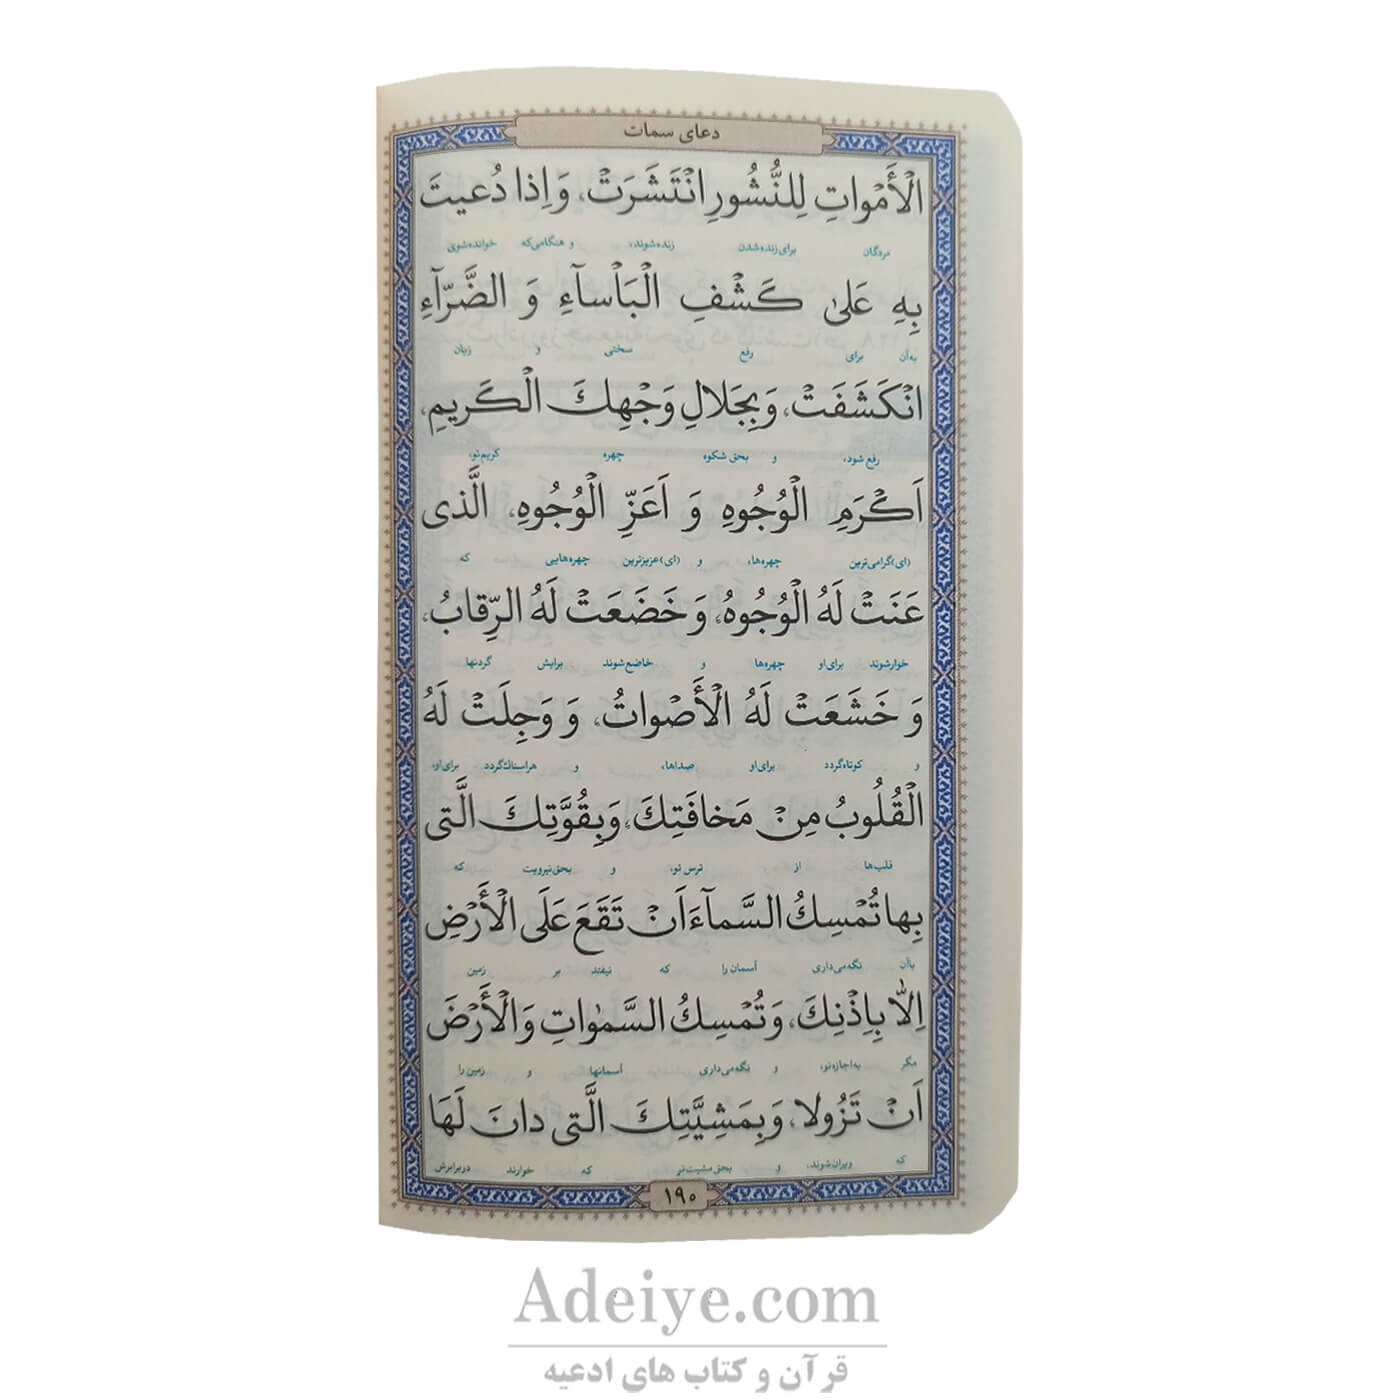 دعای سمات
الْأَمْواتِ لِلنُّشُورِ انْتَشَرَتْ، وَ اِذا دُعیتَ
مردگان برای زنده شدن زنده شوند، و هنگامی که خوانده شوی
بِهِ عَلیٰ کَشْفِ الْبَأْسآءِ وَ الضَّرّآءِ
به آن برای رفع سختی و زیان
انْکَشَفَتْ، وَ بِجَلالِ وَجْهِكَ الْکَریمِ،
رفع شود، و بحق شکوه چهره کریم تو،
اَکْرَمِ الْوُجُوهِ وَ اَعَزِّ الْوُجُوهِ، الَّذی
(ای) گرامی ترین چهره ها، و (ای) عزیزترین چهره هایی که
عَنَتْ لَهُ الْوُجُوهُ، وَ خَضَعَتْ لَهُ الرِّقابُ،
خوار شوند برای او چهره ها و خاضع شوند برایش گردنها
وَ خَشَعَتْ لَهُ الْأَصْواتُ، وَ وَجِلَتْ لَهُ
و کوتاه گردد برای او صداها، و هراسناك گردد برای او،
الْقُلُوبُ مِنْ مَخافَتِكَ، وَ بِقُوَّتِكَ الَّتی
قلب ها از ترس تو، و بحق نیرویت که
بِها تُمْسِكُ السَّمآءَ اَنْ تَقَعَ عَلَی الْأَرْضِ
بآن نگه می داری آسمان را که نیفتد بر زمین
اِلّا بِاِذْنِكَ، وَ تُمْسِكُ السَّمٰواتِ وَ الْأَرْضَ
مگر به اجازه تو، و نگه می داری آسمانها و زمین را
اَنْ تَزُولا، وَ بِمَشِیَّتِكَ الَّتی دانَ لَهَا
که ویران شوند، و بحق مشیت تو که خوارند در برابرش
۱۹۰
Adeiye.com
قرآن و کتاب های ادعیه